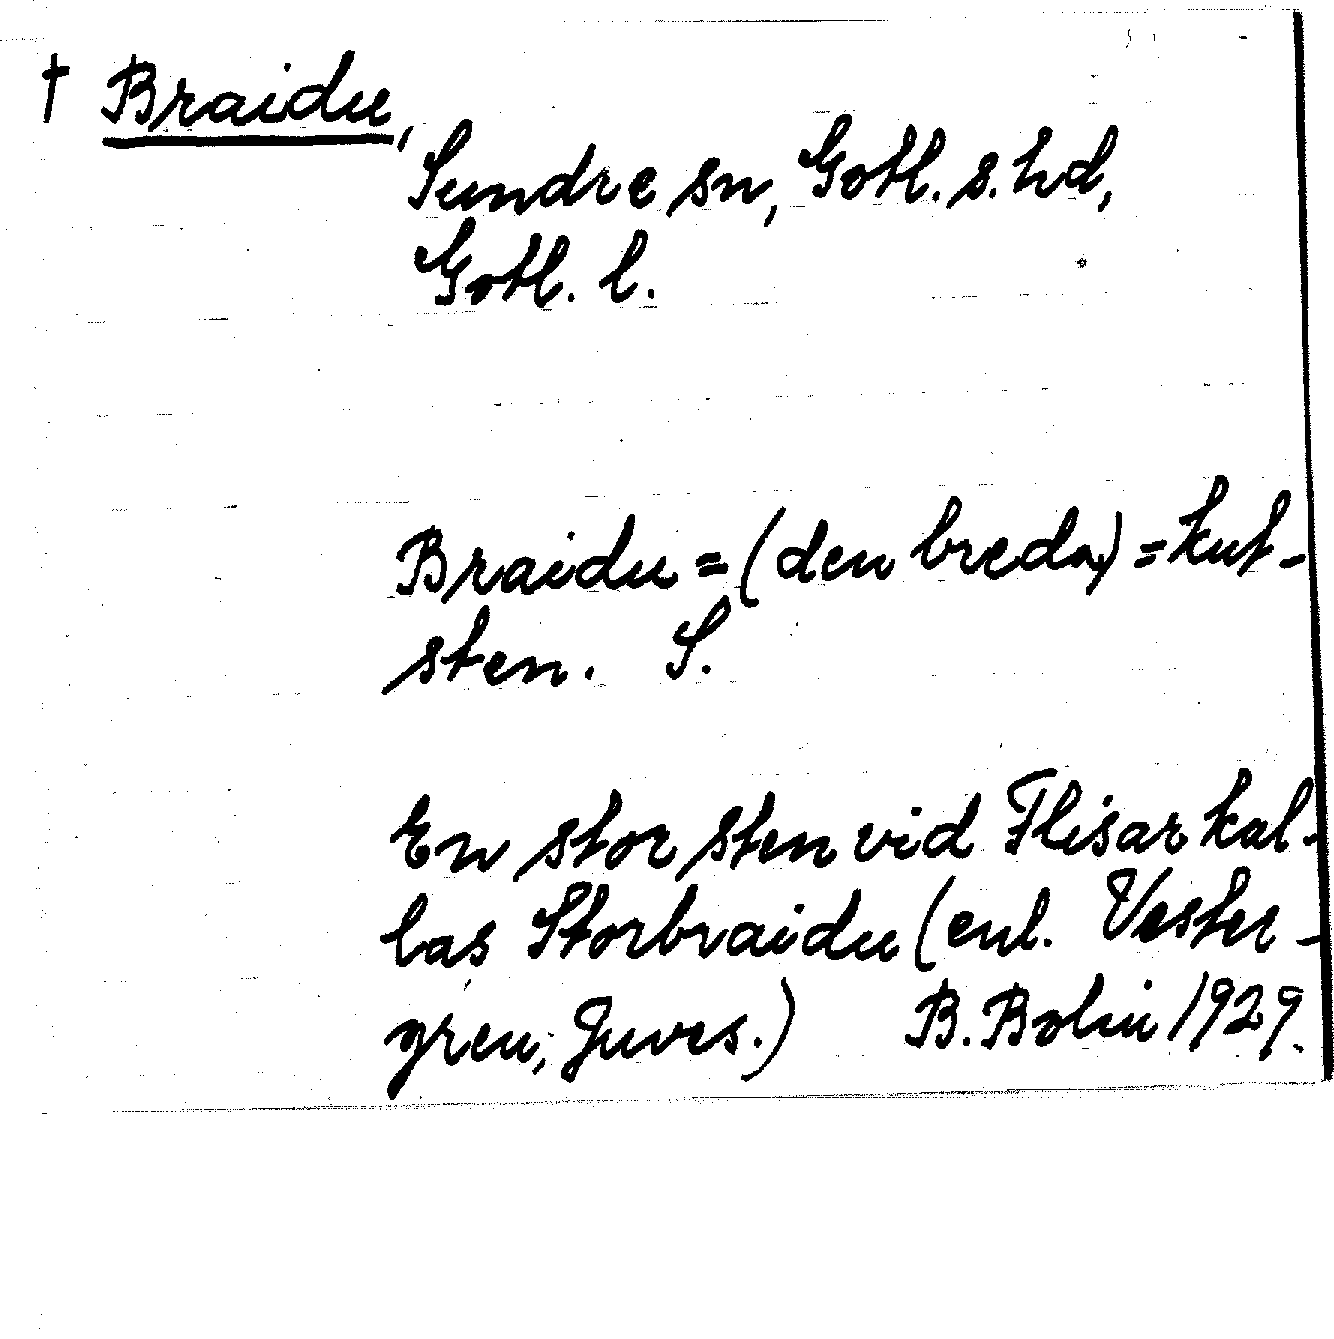 † Braidu,
Sundre sn, Gotl. s. hd,
Gotl. l.
Braidu = (den breda) = kut-
sten. S.
En stor sten vid Flisar kal-
las Storbraidu (enl. Vester-
gren, Juves.) B. Bolin 1929.